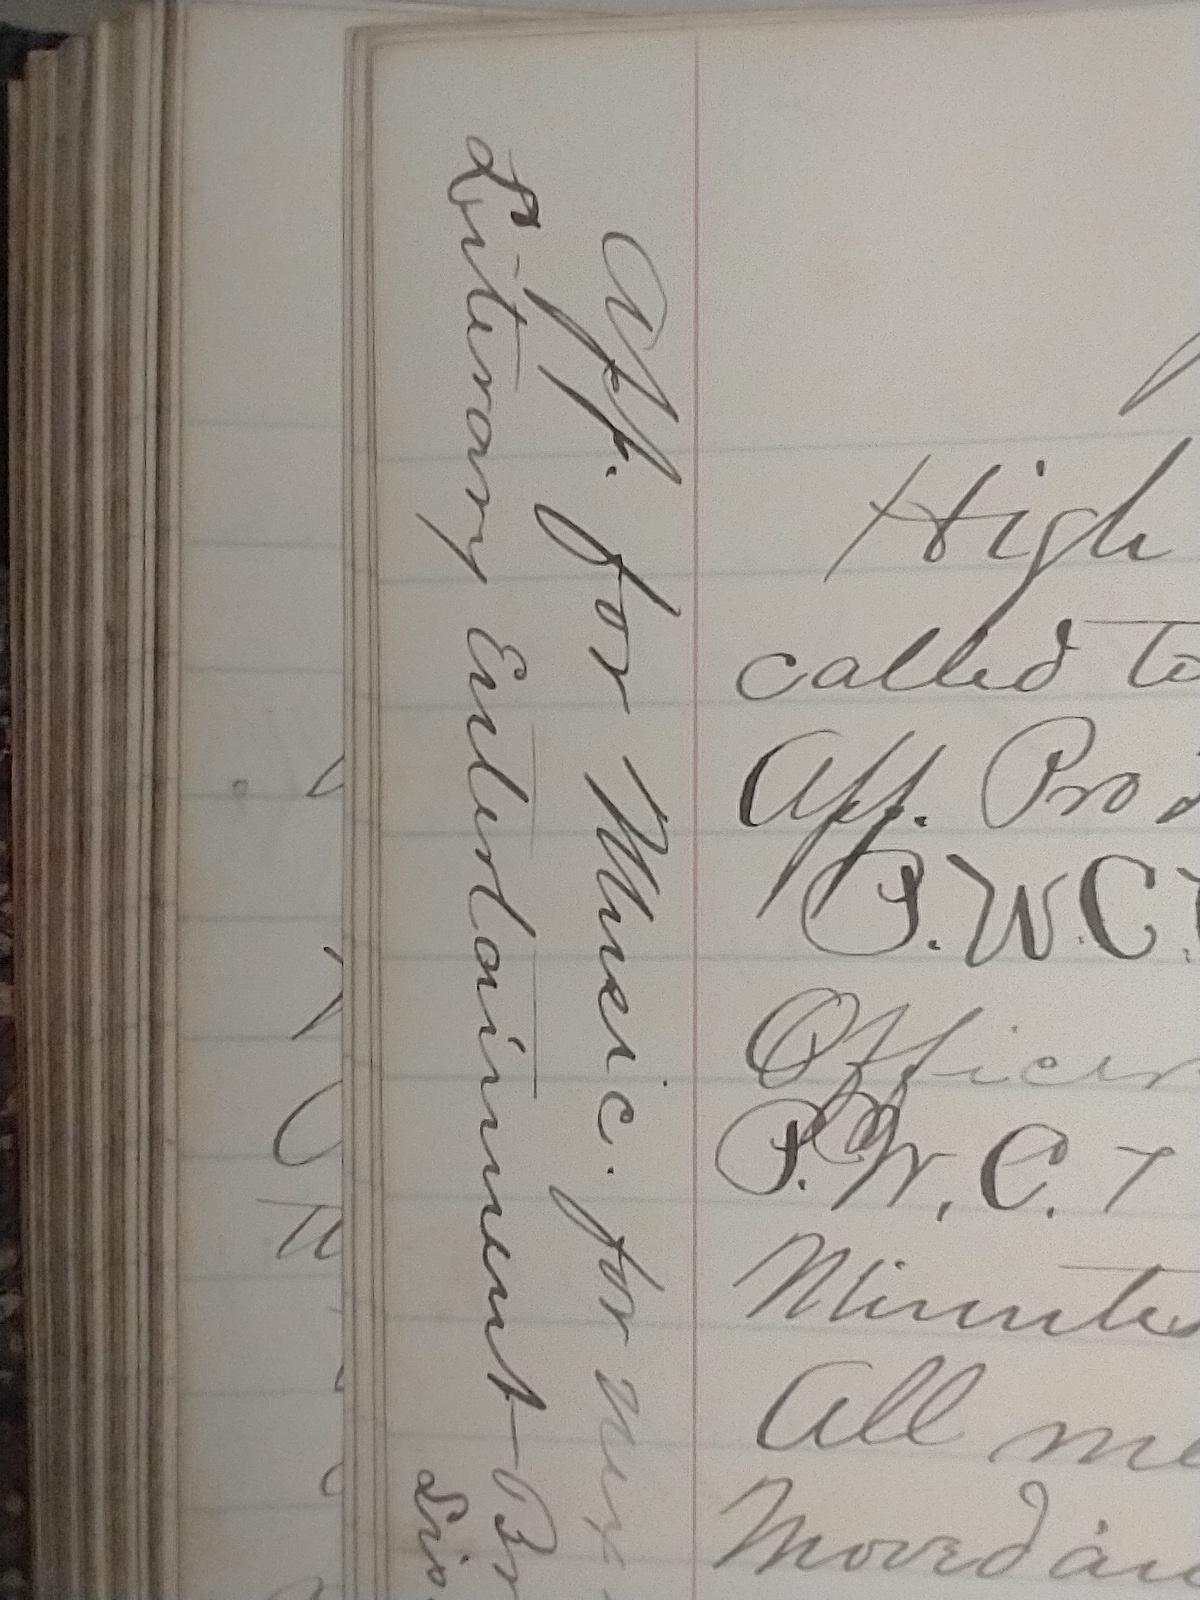 App. for Music. for
Literary Entertainment - Br
High
called to
App. Pro
P.W.C.
Officer
P.W.C.T
Minutes
All me
Moved an